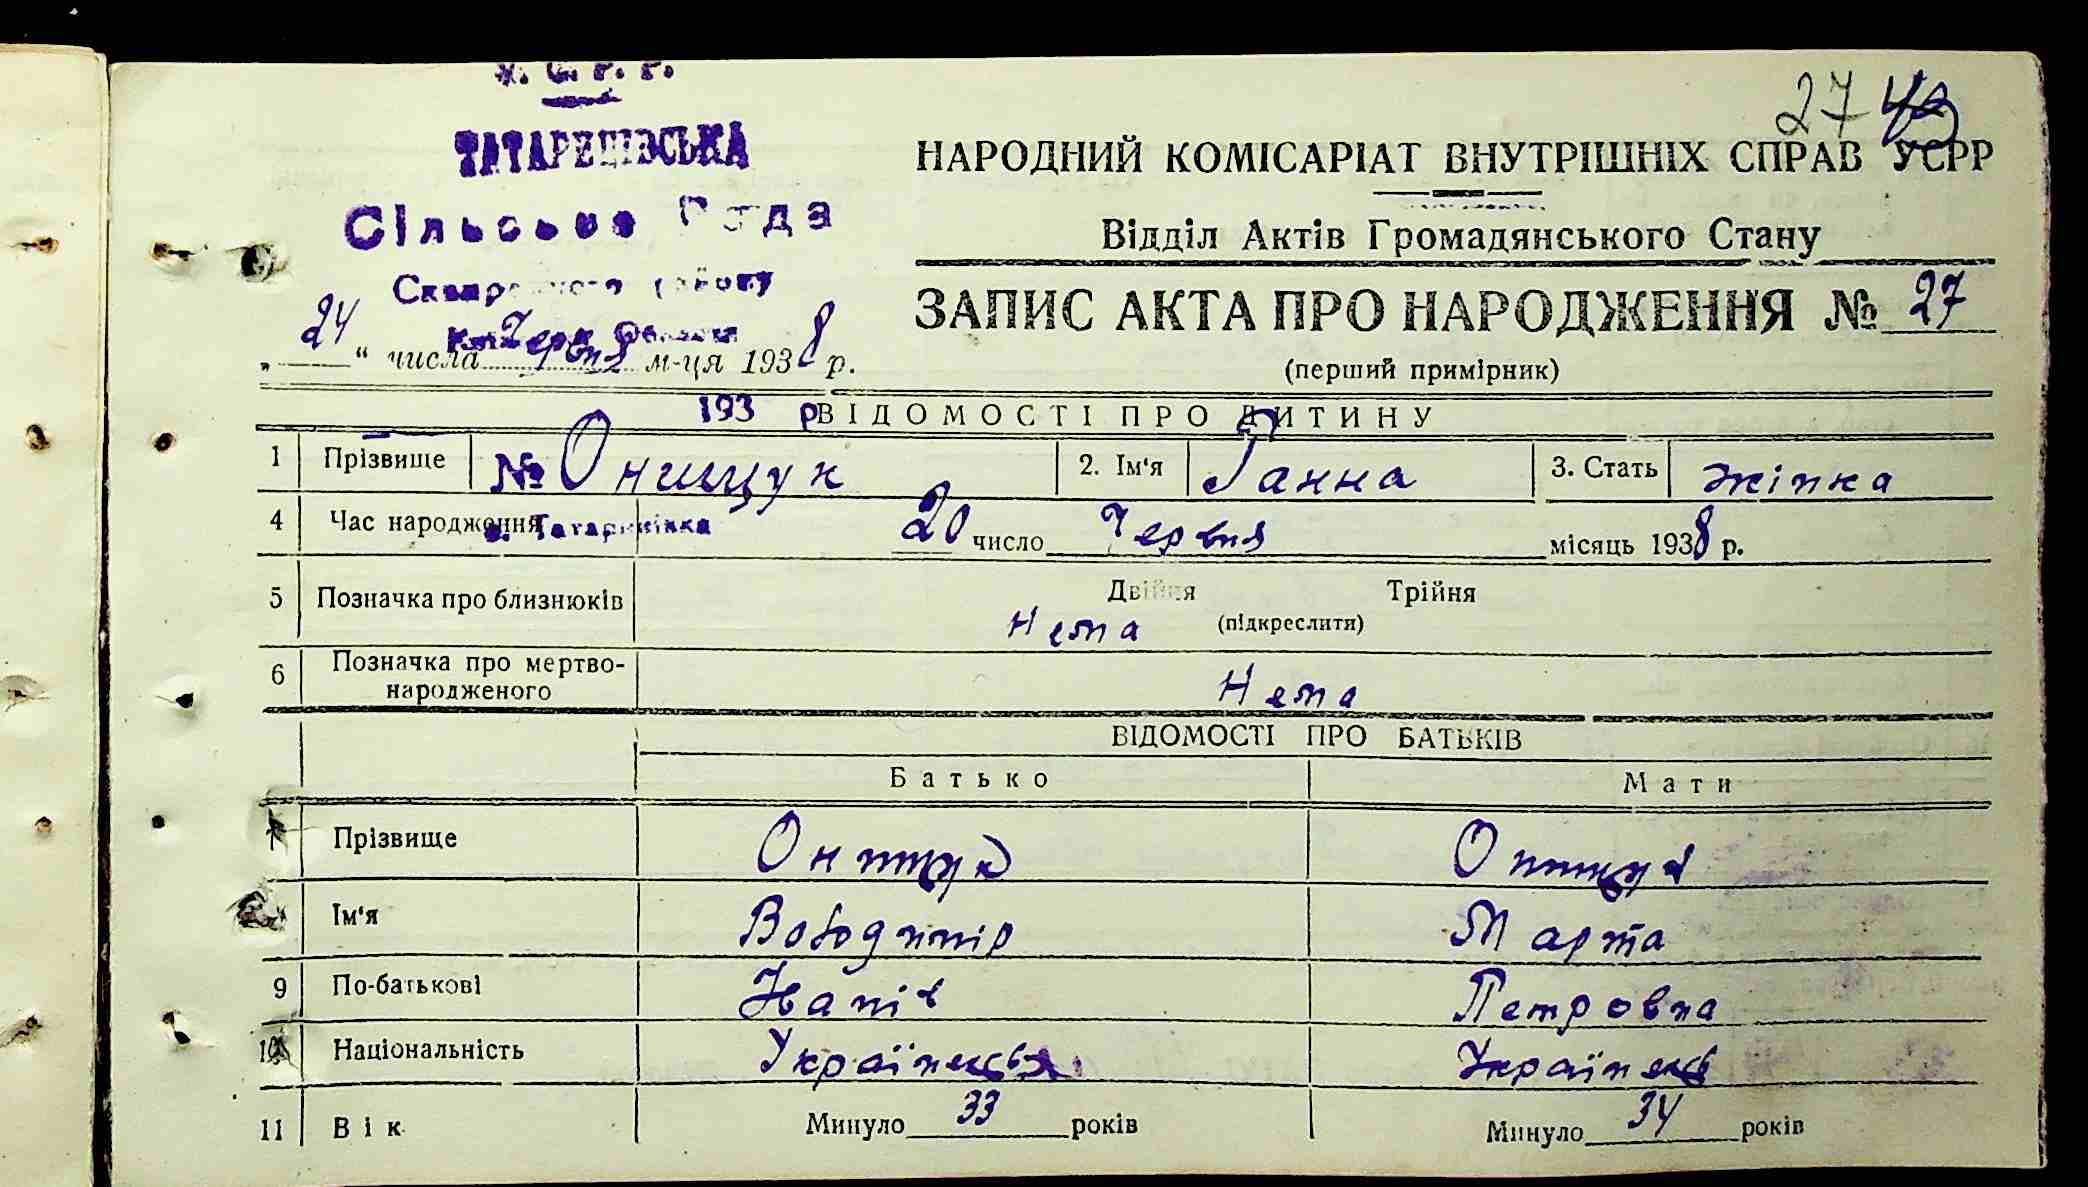 27 43
У. С. Р. Р.
ТАТАРЕШІВСЬКА
Сільська Рада
Сквирського району
Області
НАРОДНИЙ КОМІСАРІАТ ВНУТРІШНІХ СПРАВ УСРР
Відділ Актів Громадянського Стану
ЗАПИС АКТА ПРО НАРОДЖЕННЯ № 27
(перший примірник)
„ 24 “ числа Червня м-ця 1938 р.
193 р
ВІДОМОСТІ ПРО ДИТИНУ
1 Прізвище № Онищук 2. Ім'я Ганна 3. Стать жінка
4 Час народження 20 число Червня місяць 1938 р.
с. Татаринівка
5 Позначка про близнюків Двійня Трійня
Нема (підкреслити)
6 Позначка про мертво-
народженого Нема
ВІДОМОСТІ ПРО БАТЬКІВ
Батько Мати
Прізвище Онищук Онищук
Ім'я Володимір Марта
9 По-батькові Петровна
10 Національність Українець Українець
11 Вік Минуло 33 років Минуло 34 років